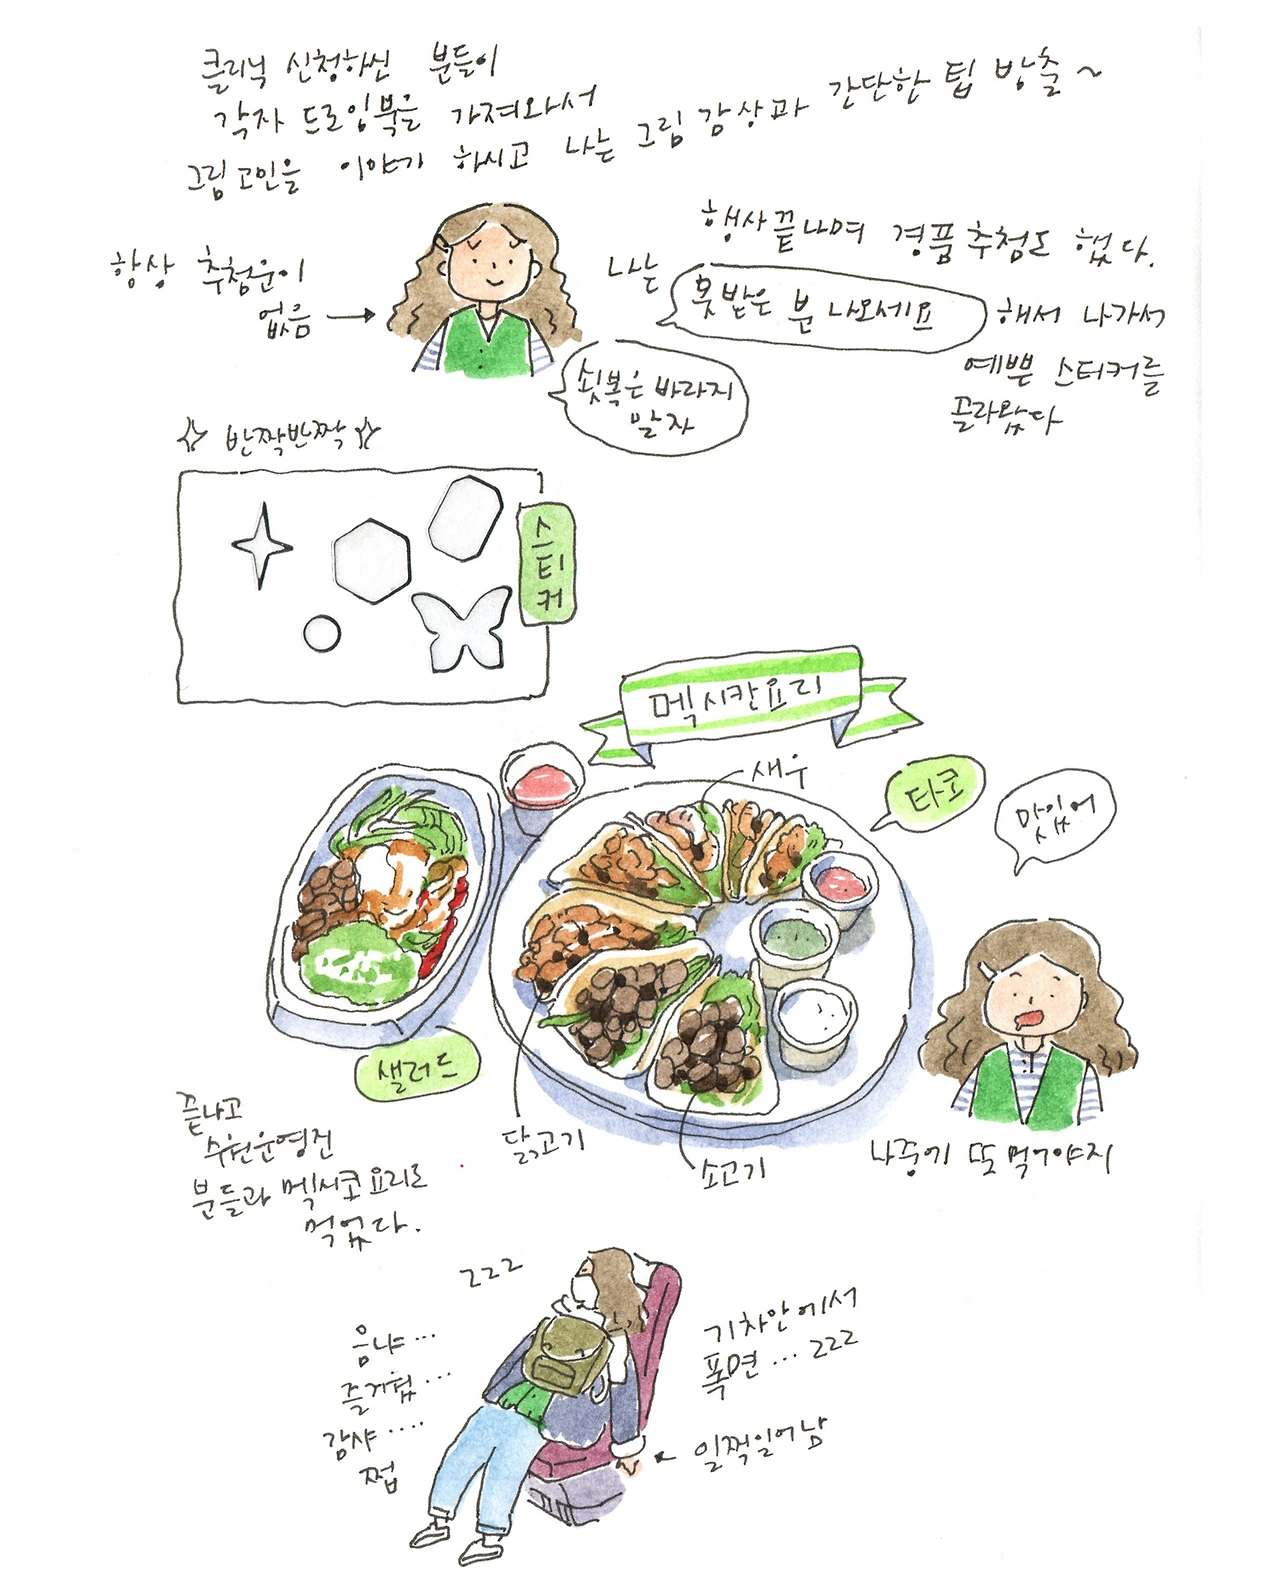 클리닉 신청하신 분들이
각자 드로잉북을 가져와서
그림고민을 이야기 하시고 나는 그림 감상과 간단한 팁 방출~
항상 추첨운이
없음
행사끝나며 경품추첨도 했다.
나는
못받은 분 나오세요
해서 나가서
예쁜 스티커를
골라왔다
쇳복은 바라지
말자
반짝반짝
스티커
멕시칸요리
새우
타코
맛있어
샐러드
닭고기
소고기
나중에 또 먹어야지
끝나고
수원운영진
분들과 멕시코요리로
먹었다.
zzz
음냐...
즐거웠...
감샤....
쩝
기차안에서
폭면... zzz
일찍일어남